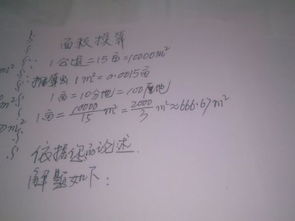 面积换算
1公顷=15亩=10000m²
换算出1m²=0.0015亩
1亩=10分地=100厘地
1亩=10000/15 m²=2000/3 m²≈666.67m²
依据
论述
解题如下: